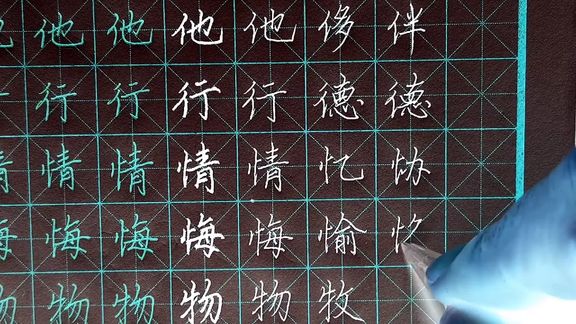 他他他他侈伴
行行行行德德
情情情情忆协
悔悔悔悔愉
物物物物牧